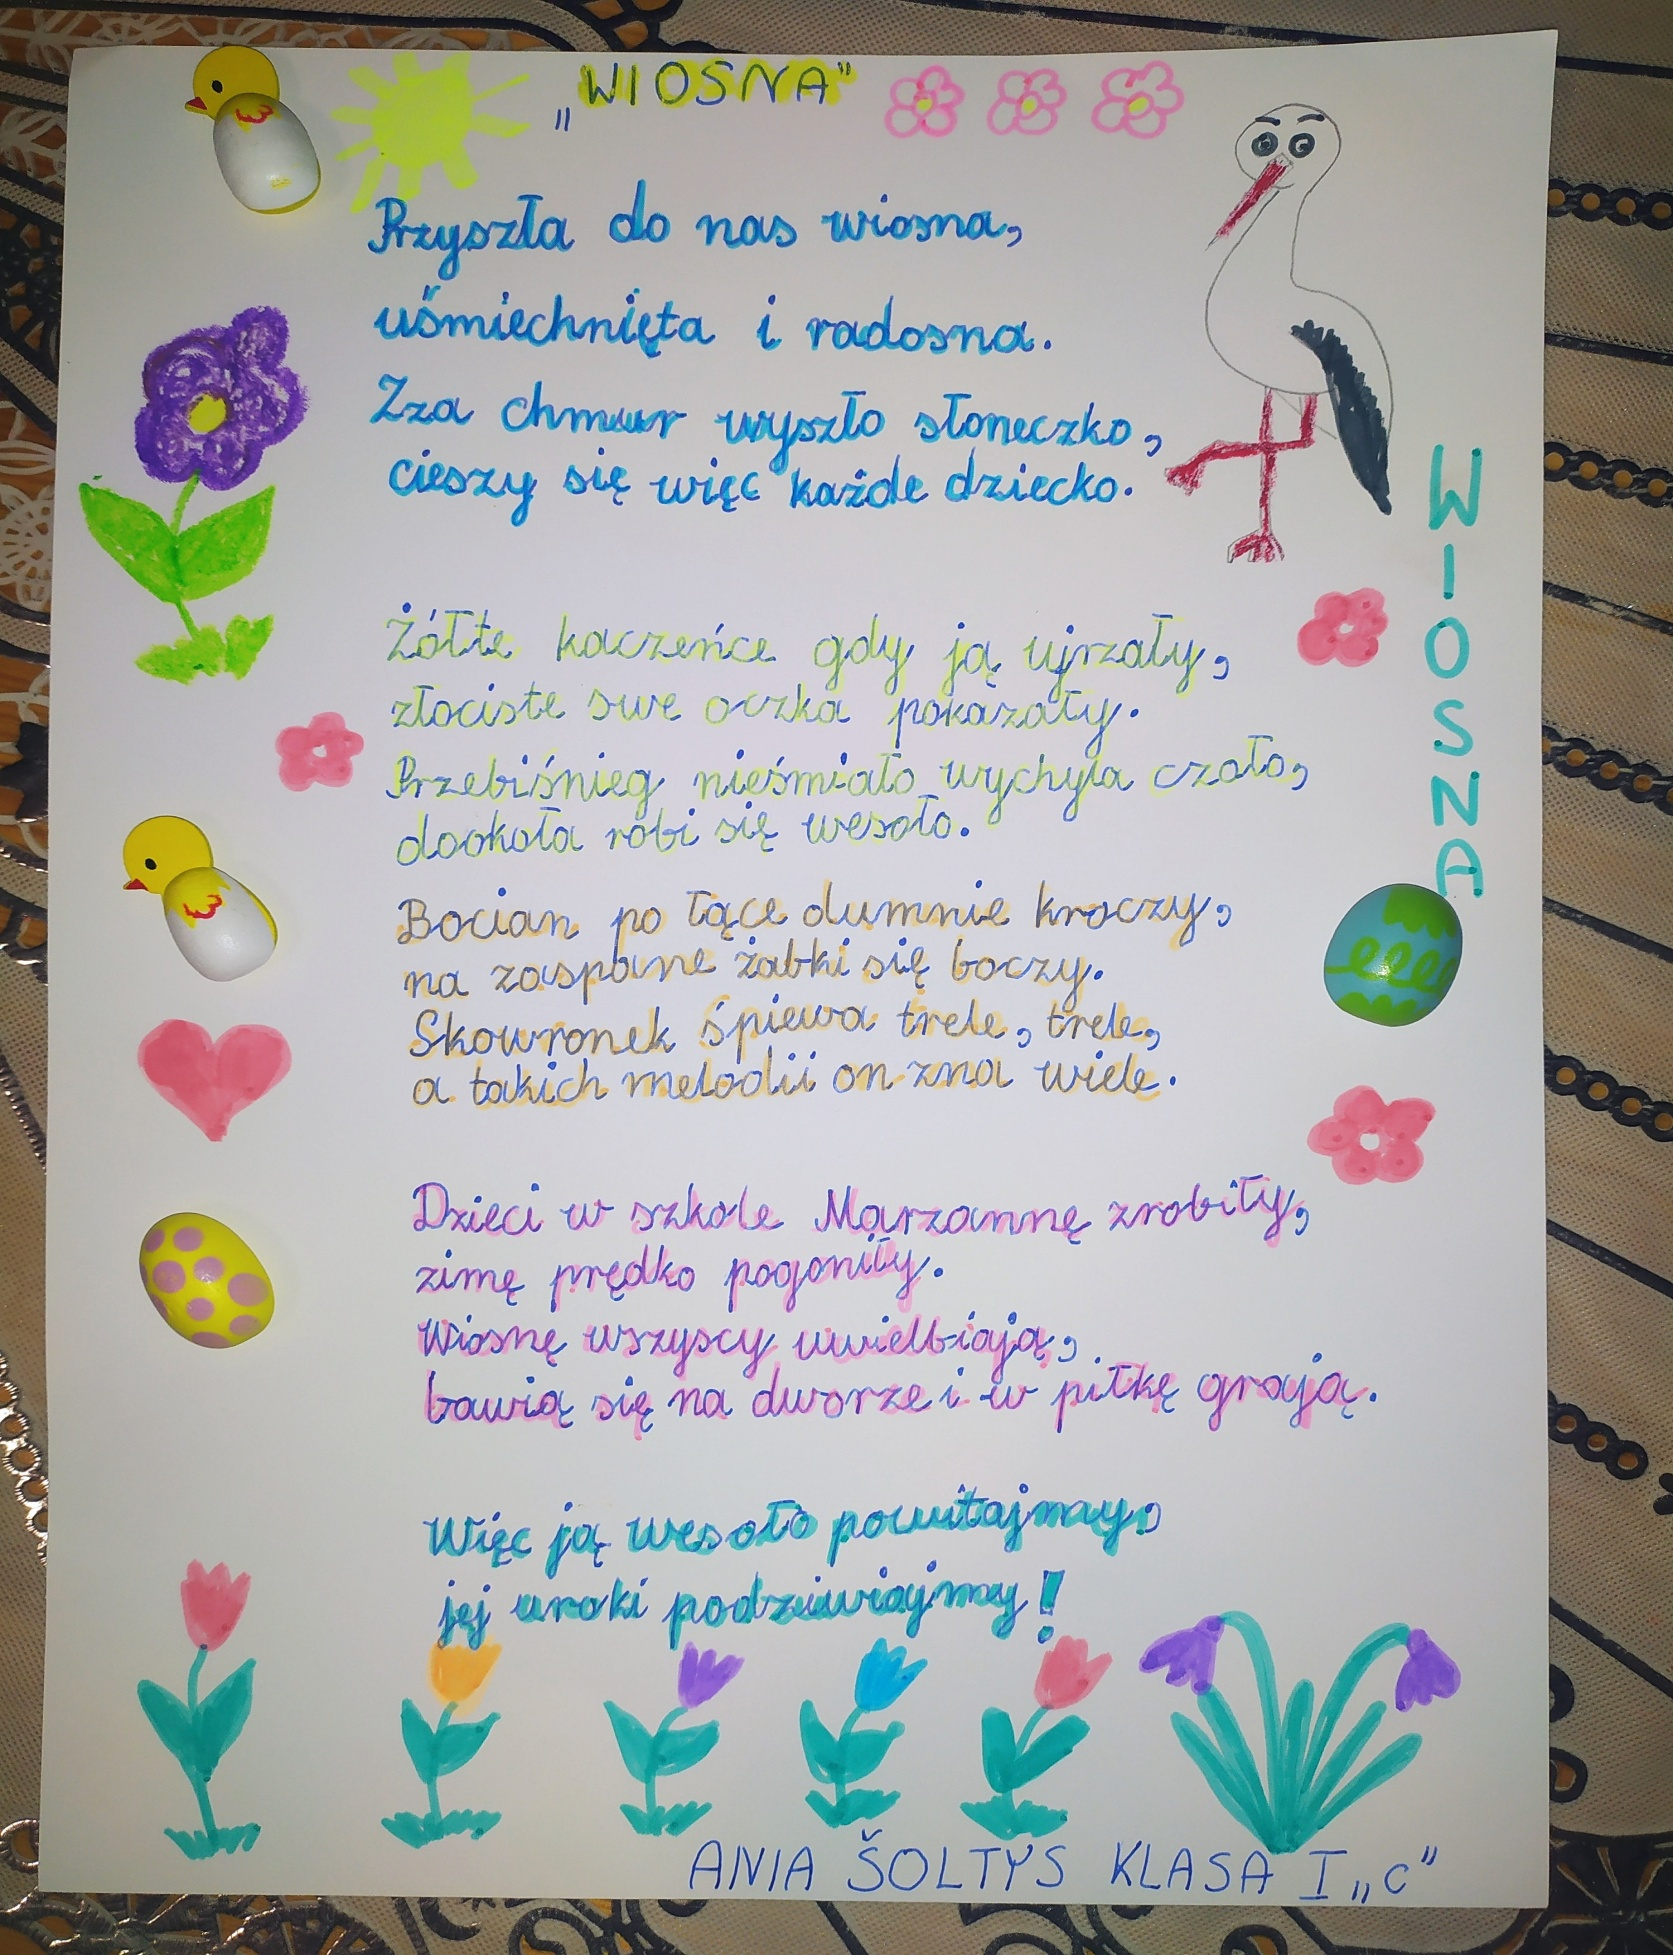 „WIOSNA"
Przyszła do nas wiosna,
uśmiechnięta i radosna.
Zza chmur wyszło słoneczko,
cieszy się więc każde dziecko.
Żółte kaczeńce gdy ją ujrzały,
złociste swe oczka pokazały.
Przebiśnieg nieśmiało wychyla czoło,
dookoła robi się wesoło.
Bocian po łące dumnie kroczy,
na zaspane żabki się boczy.
Skowronek śpiewa trele, trele,
a takich melodii on zna wiele.
Dzieci w szkole Marzannę zrobiły,
zimę prędko pogoniły.
Wiosnę wszyscy uwielbiają,
bawią się na dworze i w piłkę grają.
Więc ją wesoło powitajmy,
jej uroki podziwiajmy!
WIOSNA
ANIA ŠOLTYS KLASA I „c"